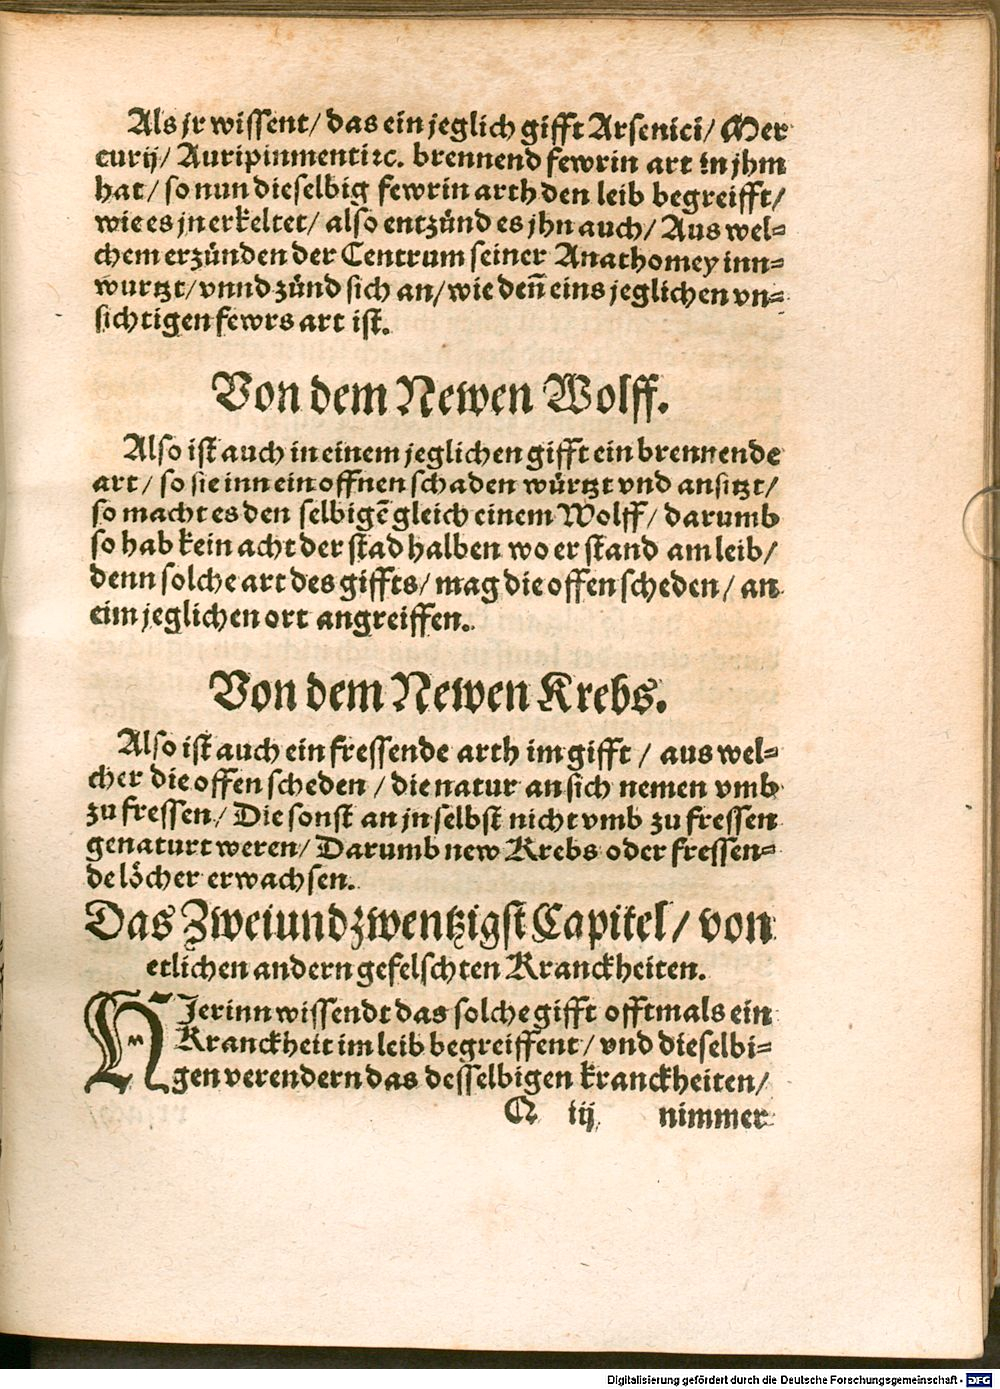 Als jr wissent/ das ein jeglich gifft Arsenici/ Mer
curij/ Auripinmenti ⁊c. brennend fewrin art in jhm
hat/ so nun dieselbig fewrin arth den leib begreifft/
wie es jn erkeltet/ also entzünd es jhn auch/ Aus wel⸗
chem erzünden der Centrum seiner Anathomey inn⸗
wurtzt/ vnnd zünd sich an/ wie deñ eins jeglichen vn⸗
sichtigen fewrs art ist.
Von dem Newen Wolff.
Also ist auch in einem jeglichen gifft ein brennende
art/ so sie inn ein offnen schaden würtzt vnd ansitzt/
so macht es den selbigẽ gleich einem Wolff/ darumb
so hab kein acht der stad halben wo er stand am leib/
denn solche art des giffts/ mag die offen scheden/ an
eim jeglichen ort angreiffen.
Von dem Newen Krebs.
Also ist auch ein fressende arth im gifft/ aus wel⸗
cher die offen scheden/ die natur an sich nemen vmb
zu fressen/ Die sonst an jn selbst nicht vmb zu fressen
genaturt weren/ Darumb new Krebs oder fressen⸗
de löcher erwachsen.
Das Zweiundzwentzigst Capitel/ von
etlichen andern gefelschten Kranckheiten.
HJerinn wissendt das solche gifft offtmals ein
Kranckheit im leib begreiffent/ vnd dieselbi⸗
gen verendern das desselbigen kranckheiten/
Q iij nimmer
Digitalisierung gefördert durch die Deutsche Forschungsgemeinschaft - DFG